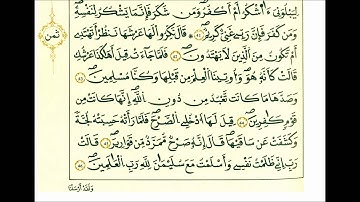 لِيَبْلُوَنِي ءَأَشْكُرُ أَمْ أَكْفُرُ وَمَن شَكَرَ فَإِنَّمَا يَشْكُرُ لِنَفْسِهِ
وَمَن كَفَرَ فَإِنَّ رَبِّي غَنِيٌّ كَرِيمٌ قَالَ نَكِّرُوا لَهَا عَرْشَهَا نَنظُرْ أَتَهْتَدِي
أَمْ تَكُونُ مِنَ الَّذِينَ لَا يَهْتَدُونَ فَلَمَّا جَاءَتْ قِيلَ أَهَكَذَا عَرْشُكِ
قَالَتْ كَأَنَّهُ هُوَ وَأُوتِينَا الْعِلْمَ مِن قَبْلِهَا وَكُنَّا مُسْلِمِينَ
وَصَدَّهَا مَا كَانَت تَّعْبُدُ مِن دُونِ اللَّهِ إِنَّهَا كَانَتْ مِن
قَوْمٍ كَافِرِينَ قِيلَ لَهَا ادْخُلِي الصَّرْحَ فَلَمَّا رَأَتْهُ حَسِبَتْهُ لُجَّةً
وَكَشَفَتْ عَن سَاقَيْهَا قَالَ إِنَّهُ صَرْحٌ مُّمَرَّدٌ مِّن قَوَارِيرَ قَالَتْ
رَبِّ إِنِّي ظَلَمْتُ نَفْسِي وَأَسْلَمْتُ مَعَ سُلَيْمَانَ لِلَّهِ رَبِّ الْعَالَمِينَ
ثمن
وَلَقَدْ أَرْسَلْنَا